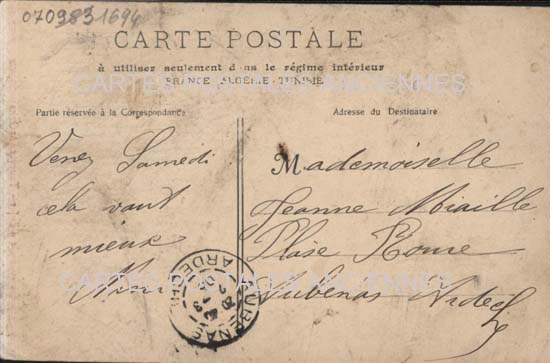 0709831694
CARTE POSTALE
à utiliser seulement dans le régime intérieur
FRANCE - ALGÉRIE - TUNISIE
CARTES POSTALES ANCIENNES
Partie réservée à la Correspondance
Venez Samedi
cela vaut
mieux
Adresse du Destinataire
Mademoiselle
Jeanne Miaille
Plase
Aubenas Ardech
AUBENAS
ARDECHE
CARTES POSTALES ANCIENNES